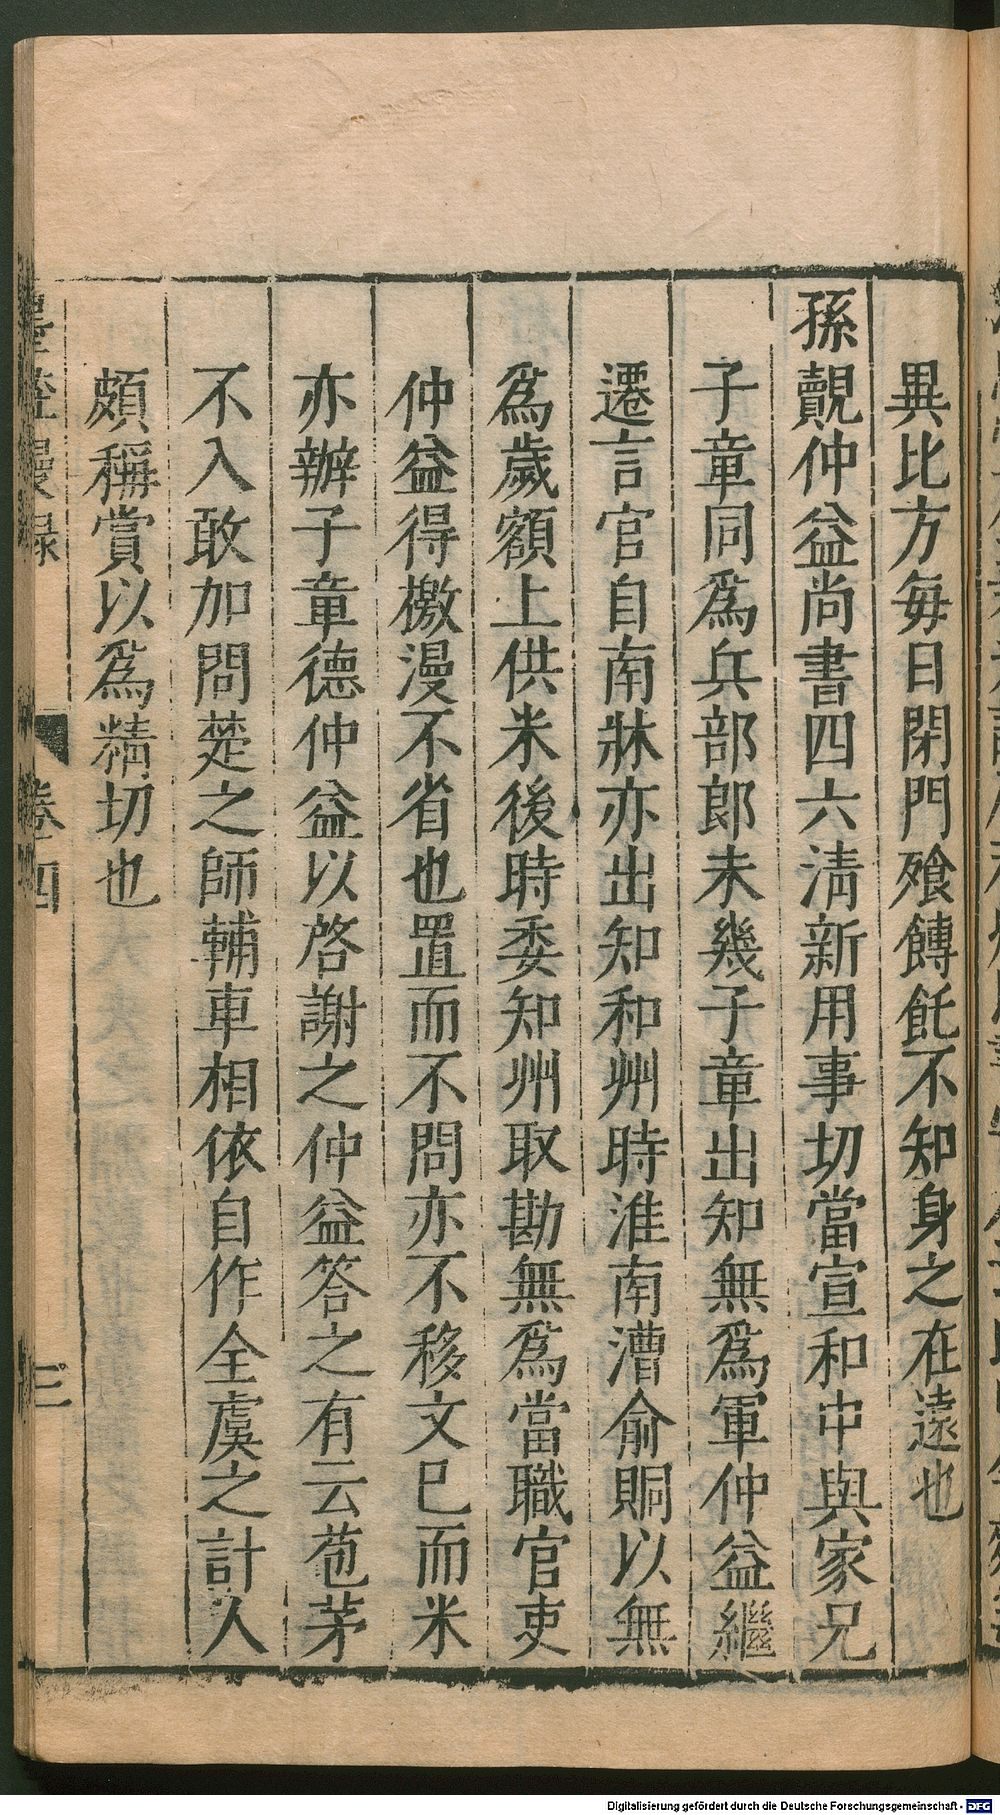 異比方每日閉門飱餺飥不知身之在遠也
孫覿仲益尚書四六清新用事切當宣和中與家兄
子章同爲兵部郎未幾子章出知無爲軍仲益繼
遷言官自南牀亦出知和州時淮南漕俞賙以無
爲歲額上供米後時委知州取勘無爲當職官吏
仲益得檄漫不省也置而不問亦不移文已而米
亦辦子章德仲益以啓謝之仲益答之有云苞茅
不入敢加問楚之師輔車相依自作全虞之計人
頗稱賞以爲精切也
墨莊漫錄
卷四
三
Digitalisierung gefördert durch die Deutsche Forschungsgemeinschaft - DFG